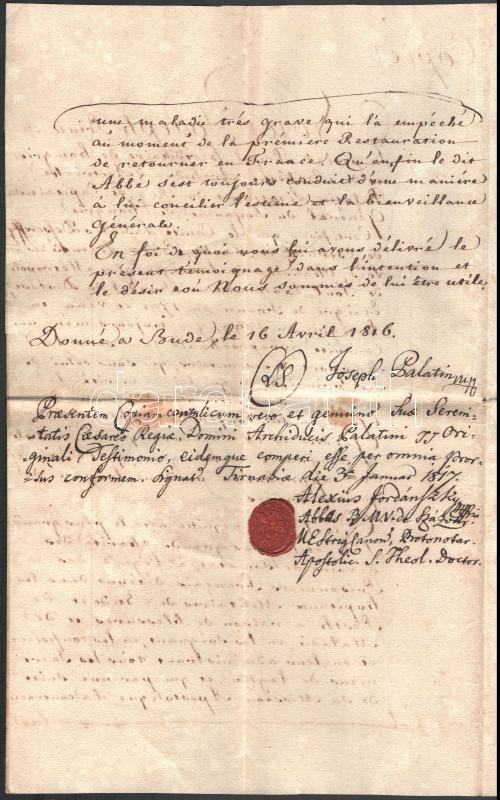 une maladie trés grave qui l'a empéché
au moment de la prémiere Restauration
de retourner en Fraace, Qu'enfin le dit
Abbé s'est toujours conduit d'une maniére
à lui concilier l'estime et la bienveillance
générale.
En foi de quoi vous lui avons délivré le
présent temoignage dans l'intention et
le désir où Nous sommes de lui être utile.
Donné, a Bude, le 16 Avril 1816.
LS. Joseph Palatin
Præsentem Copiam cum vero et genuino Suæ Sereni-
tatis Cæsareo Regiæ, Domini Archiducis Palatini Ori-
ginali Testimonio, eidemque comperi esse per omnia pror-
sus conformem. Signat. Tirnaviæ die 3a Januar 1817.
Alexius Jordanszky
Abbas B.M.V. de
M.Strigonien, Protonotar.
Apostolic. S. Theol. Doctor.
darabanth